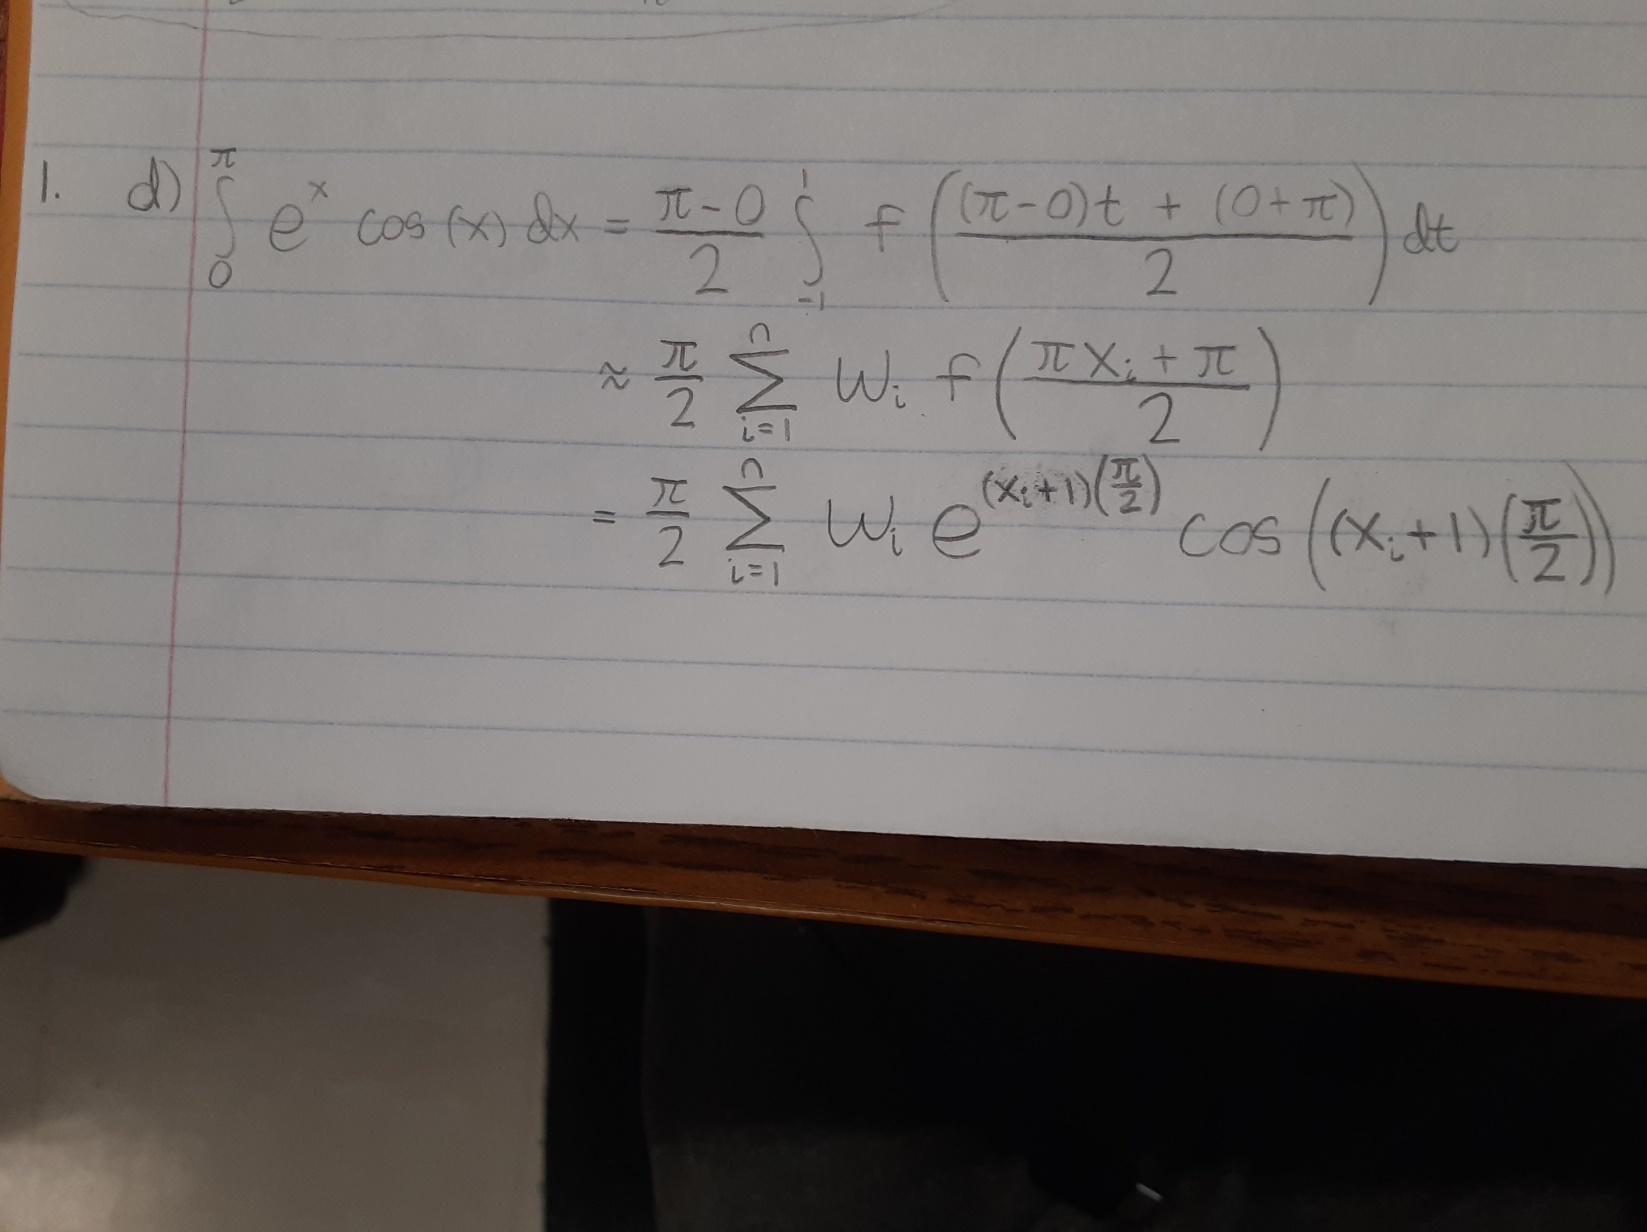 1. d) ∫₀^π e^x cos(x) dx = (π-0)/2 ∫₋₁^1 f( ((π-0)t + (0+π))/2 ) dt
≈ π/2 ∑_{i=1}^n w_i f( (πx_i + π)/2 )
= π/2 ∑_{i=1}^n w_i e^{(x_i+1)(π/2)} cos((x_i+1)(π/2))